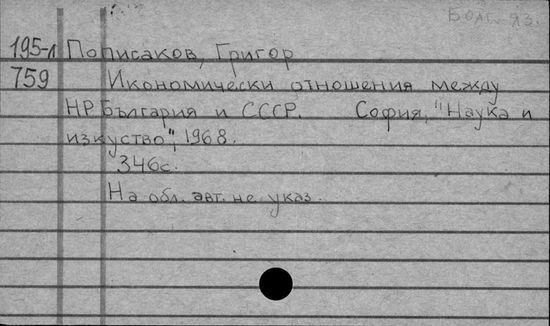 Болг. яз.
195-л Пописаков, Григор
759 Икономически отношения между
НР България и СССР. София, "Наука и
изкуство", 1968.
346с.
На обл. авт. не указ.